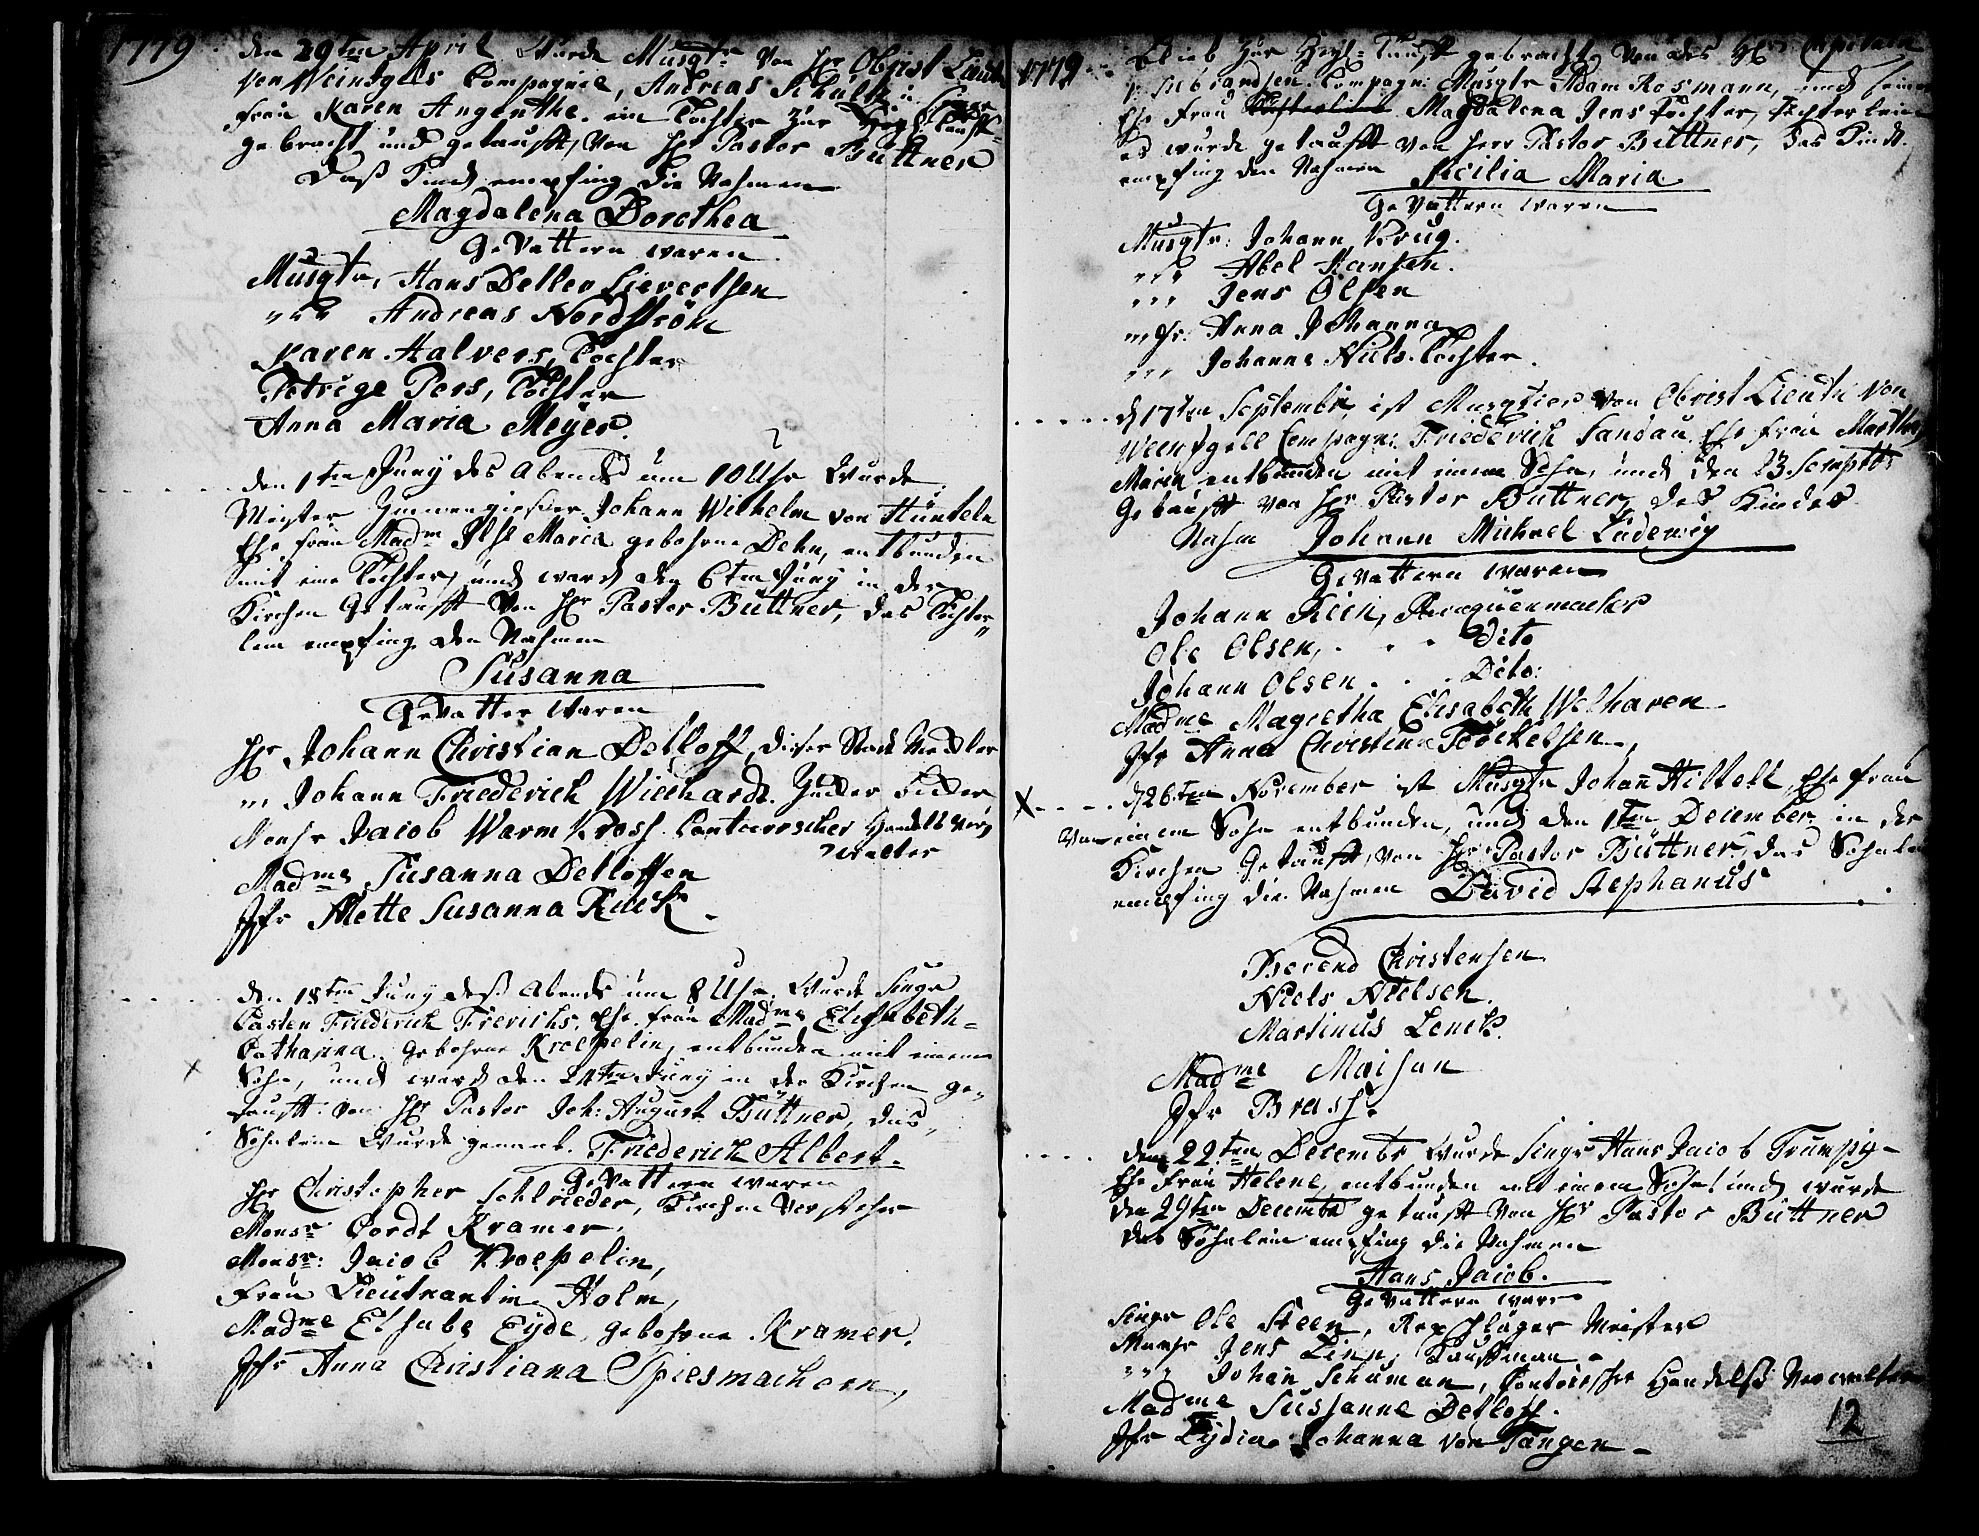 1779. den 29ten April Wurde Musqtr Von Hr Obrist Lieut
Von Weintzells Compagnie, Andreas Schultz u
Frau Karen Angenthe. ein Tochter zur Tauff
gebracht und getaufft, von Hr Pastor Büttner
Daß Kind empfing die Nahmen
Magdalena Dorothea
Gevattern waren
Musqtr. Hans Detlev Sievertsen
" " " Andreas Nordström
Karen Halvers, Tochter
Petrige Pers, Tochter
Anna Maria Meÿer.
den 1ten Juny des Abends um 10 Uhr Wurde
Meister Zinnengießer Johann Wilhelm von Hünteln
Ehe frau Madme Ilse Maria gebohrne Dehn, entbunden
mit eine Tochter, und ward den 6ten Juny in der
Kirchen Getaufft Von Hr Pastor Büttner, das Töchter
lein empfing den Nahmen
Susanna
Gevatter Waren
Hr Johann Christian Detloff, dieser Stadt Medler
" " " Johann Friederich Wieshardt.
Monsr Jacob Warm Kross. Contoirscher Handels Ver
walter
Madme Susanna Detloffen
Jfr Mette Susanna Kuck.
den 18ten Juny deß Abends um 8 Uhr Wurde Singr
Casten Friederich Frerichs, Ehe frau Madme Elisabeth
Catharina. Gebohrne Kroepelin, entbunden mit einem
Sohn, und ward den 24ten Juny in der Kirchen ge
taufft von Hr Pastor Joh: August Büttner, das
Söhnlein Wurde genent. Friederich Albert.
Gevattern waren
Hr Christopher Schlrieder, Kirchen Vorsteher
Monsr Cordt Kramer.
Monsr: Jacob Kroepelin,
Frau Lieutnantin Holm,
Madme Elsabe Eÿde, gebohrne Kramer.
Jfr Anna Christiana Spiesmachern,
1779. Blieb zur Heyl: Tauff gebracht, Von des Hr Capitain
Compagni Musqtr Adam Rosmann, und seine
Ehe Frau Magdalena Jens Tochter, Töchterlein
es wurde getaufft von Herr Pastor Büttner, das Kindt.
empfing den Nahmen Sicilia Maria.
Gevattern waren
Musqtr: Johann Krug.
" " " Abel Hansen.
" " " Jens Olsen
" " fr: Anna Johanna
" " " Johanne Niels Tochter.
d 17ten Septembr, ist Musqtier von Obrist Lieutn Von
Weentzell Compagni Friederich Sandau, Ehe frau Martha
Maria entbunden mit einem Sohn, und den 23. Septbr
Getaufft von Hr Pastor Buttner, des Kindes
Nahm Johann Michael Ludewig
Gevattern waren
Johann Klein, Perequenmacher
Ole Olsen, . . . Dito
Johann Olsen . . . Dito.
Madme Magretha Elisabeth Welhaven
Jfr Anna Christina Torckelsen,
x d 26ten November ist Musqtr Johan Hiltell, Ehe frau
Von einem Sohn entbunden, und den 1ten December, in der
Kirchen Getaufft, von Hr Pastor Büttner, das Söhnlein
empfing die Nahmen David Stephanus
Berend Christensen
Niels Nielsen.
Martinus Lenck.
Madme Moisan
Jfr Brasch.
den 22ten Decembr Wurde Singr Hans Jacob Trumpÿ
Ehe Frau Helene, entbunden mit einem Sohn, und wurde
den 29ten Decembr getaufft Von Hr Pastor Büttner
das Söhnlein empfing die Nahmen
Hans Jacob.
Gevattern waren
Singr Ole Steen, Repschläger Meister
Monsr Jens Linn, Kauffman
" " " Johan Schuman, Contoirscher Handelß Verwalter
Madme Sussanne Detloff.
Jfr Lydia Johanna von Tangen
12